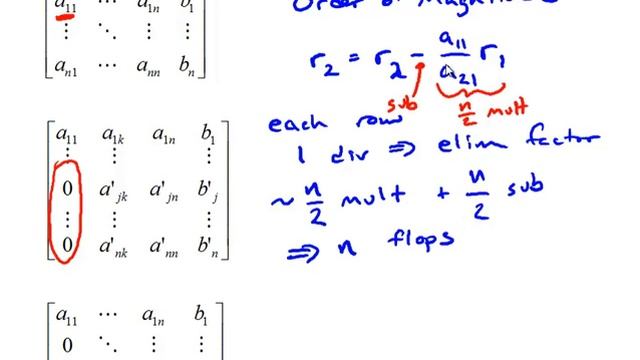 a11 ⋯ a1n b1
⋮ ⋱ ⋮ ⋮
an1 ⋯ ann bn
Order of Magnitude
r2 = r2 - a11/a21 r1
sub n/2 mult
a11 a1k a1n b1
⋮ ⋮ ⋮
0 a'jk a'jn b'j
⋮ ⋮ ⋮ ⋮
0 a'nk a'nn b'n
each row
1 div ⇒ elim factor
~ n/2 mult + n/2 sub
⇒ n flops
a11 ⋯ a1n b1
0 ⋱ ⋮ ⋮